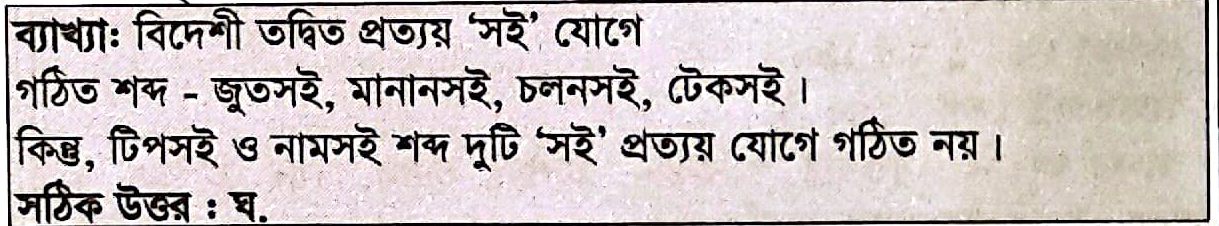 ব্যাখ্যাঃ বিদেশী তদ্বিত প্রত্যয় ‘সই’ যোগে
গঠিত শব্দ - জুতসই, মানানসই, চলনসই, টেকসই।
কিন্তু, টিপসই ও নামসই শব্দ দুটি ‘সই’ প্রত্যয় যোগে গঠিত নয়।
সঠিক উত্তর : ঘ.